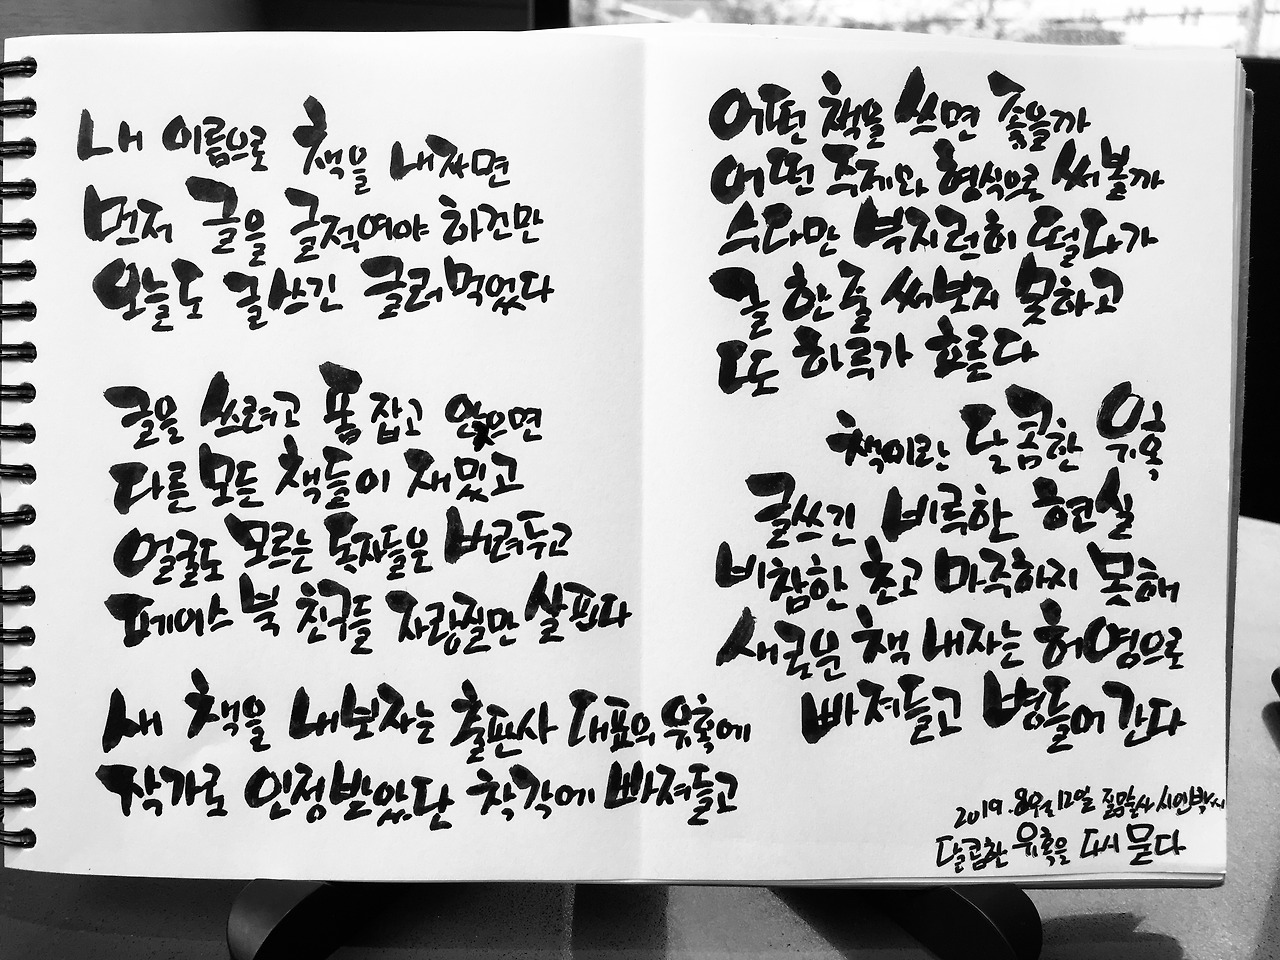 내 이름으로 책을 내자면
먼저 글을 글적여야 하건만
오늘도 글쓰긴 글러먹었다
글을 쓰려고 폼 잡고 앉으면
다른 모든 책들이 재밌고
얼굴도 모르는 독자들은 버려두고
페이스북 친구들 자랑질만 살핀다
내 책을 내보자는 출판사 대표의 유혹에
작가로 인정받았단 착각에 빠져들고
어떤 책을 쓰면 좋을까
어떤 주제와 형식으로 써볼까
수다만 부지런히 떨다가
글 한 줄 써보지 못하고
또 하루가 흐른다
책이란 달콤한 유혹
글쓰긴 비루한 현실
비참한 초고 마주하지 못해
새로운 책 내자는 허영으로
빠져들고 병들어 간다
2019.8월12일 질말사 시인박씨
달콤한 유혹을 다시 묻다